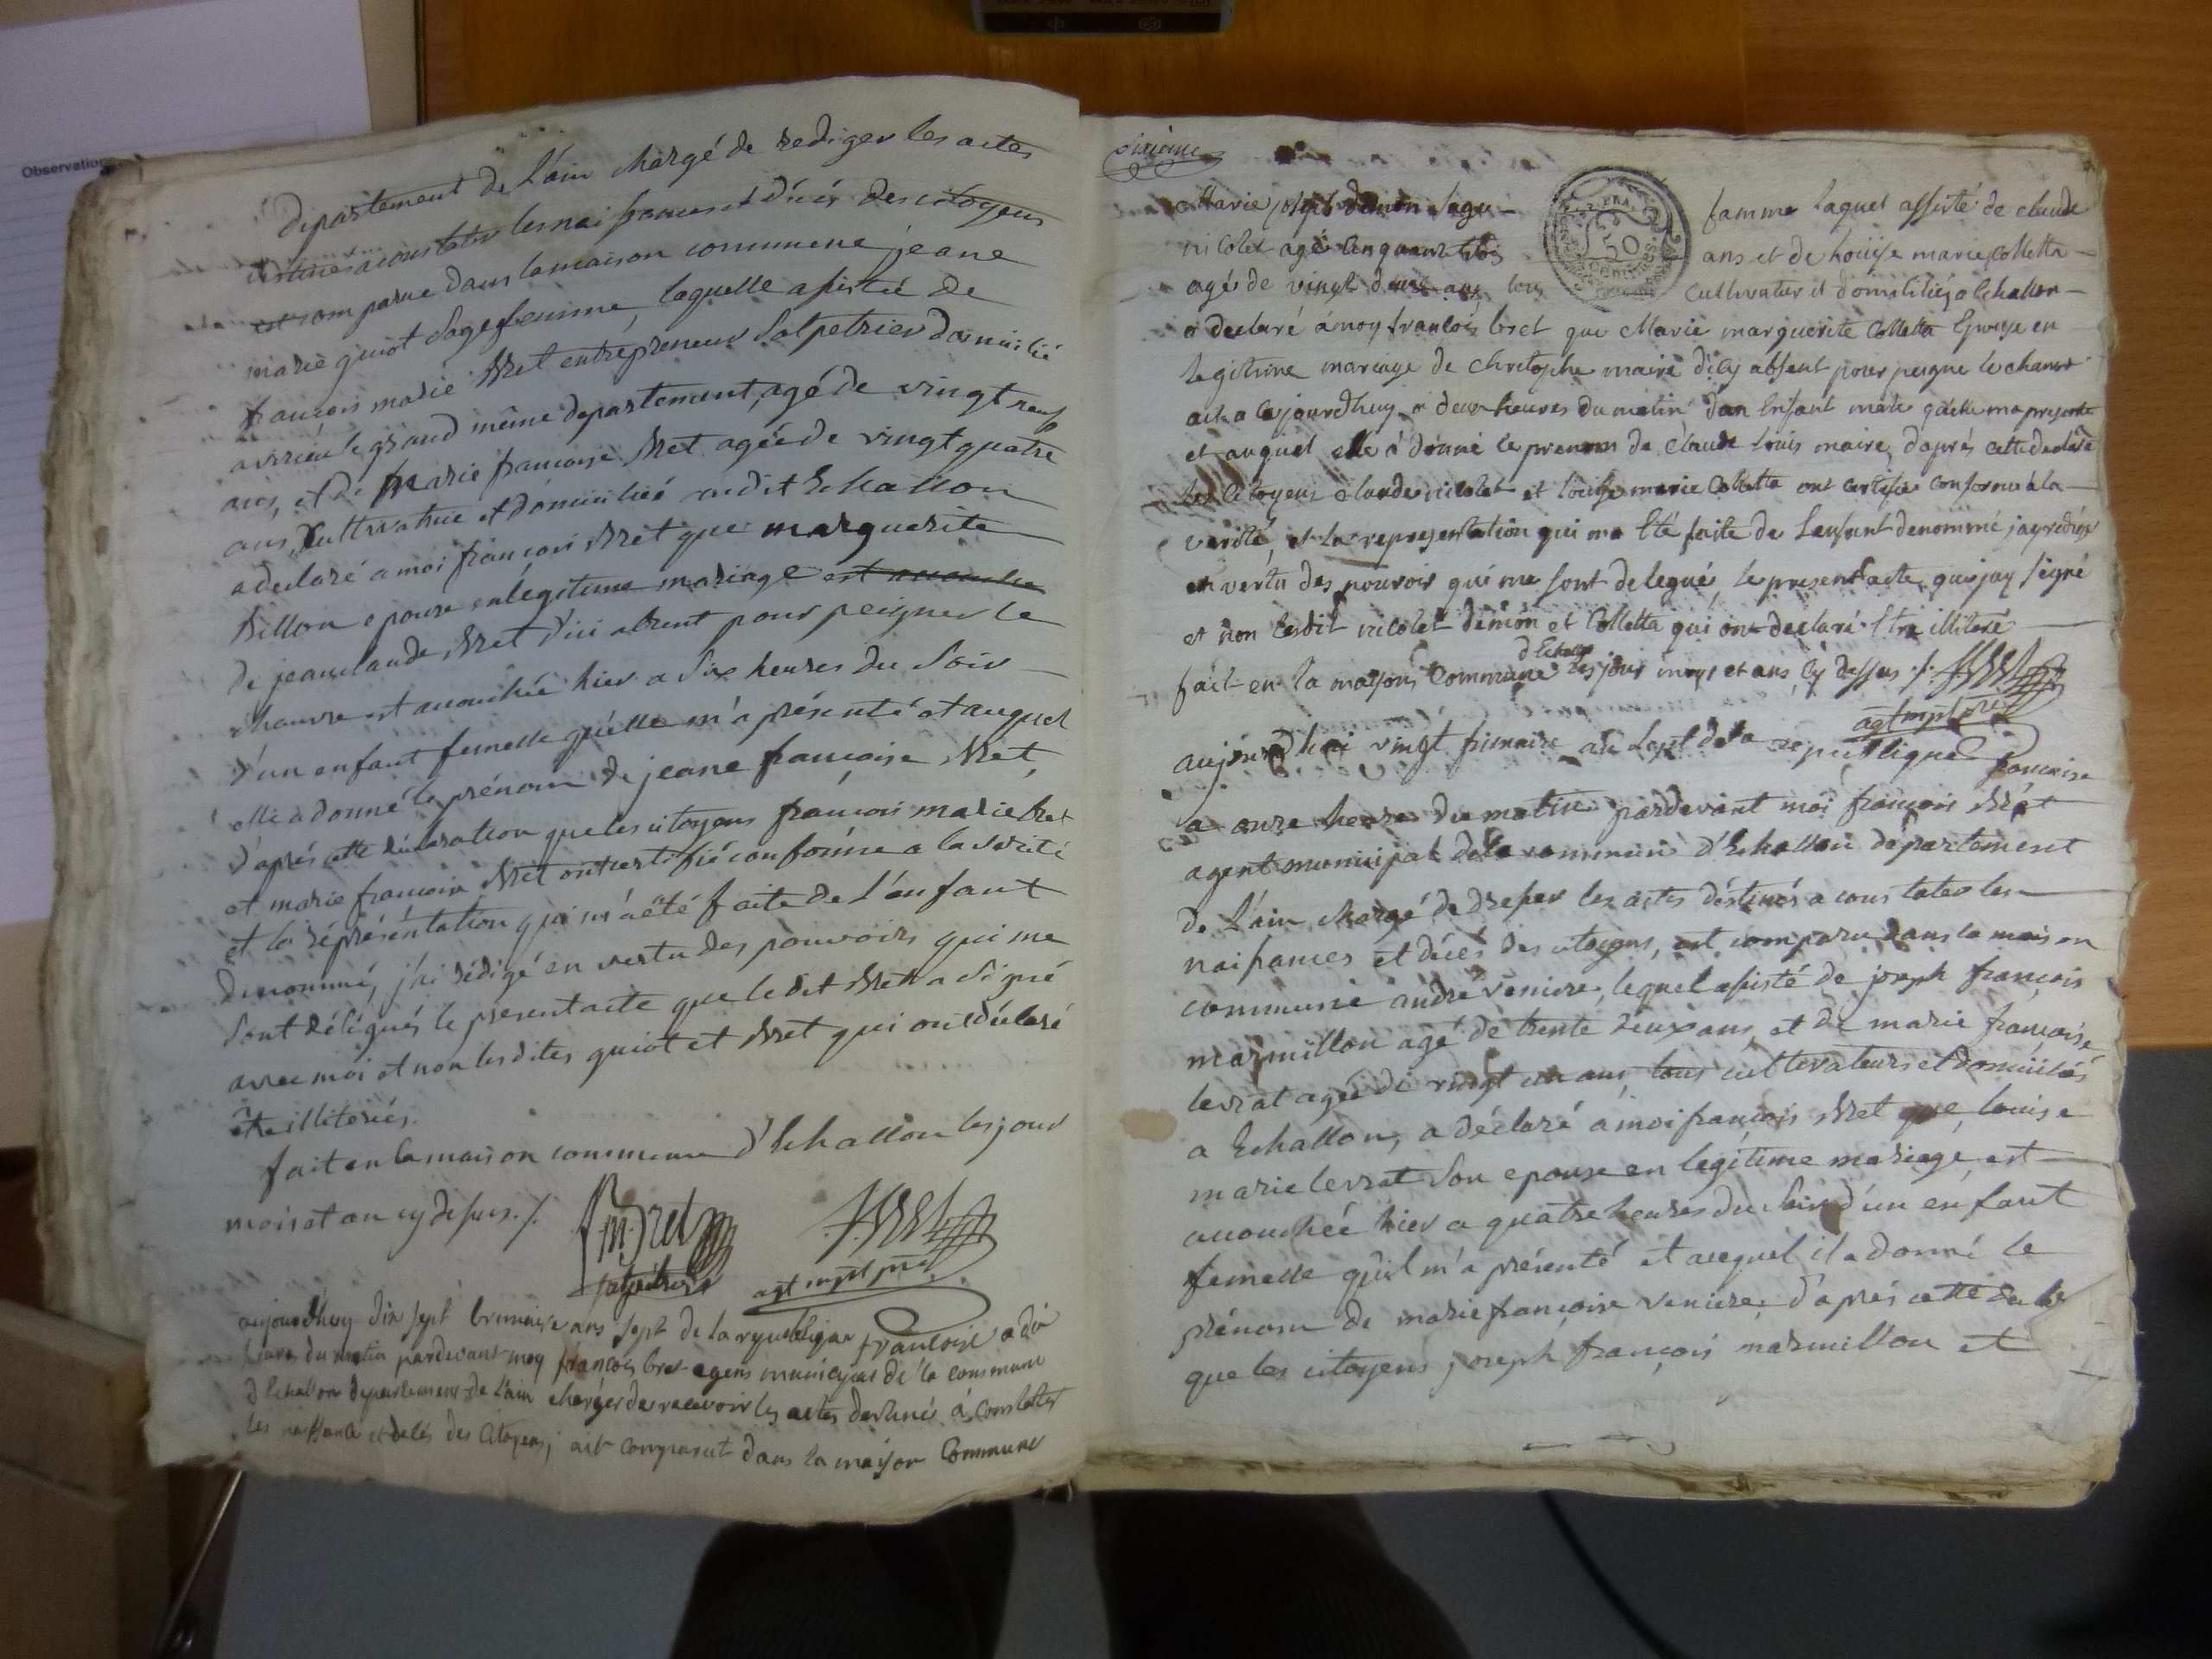 Observation
departement de L'ain chargé de rediger les actes
destinés a constater les naissances et décés des citoyens
est comparue dans la maison commune jeane
marie guiot sagefemme, laquelle assistée de
françois marie Bret entrepreneur salpetrier domicilié
a vrieu le grand même departement, agé de vingt neuf
ans, et de marie françoise Bret agée de vingt quatre
ans, cultivatrice et domiciliée audit Echallon
a declaré a moi françois Bret que marguerite
Billon epouse en légitime mariage est accouchée
de jean claude Bret d'ici absent pour peigner le
chanvre est accouchée hier a six heures du soir
d'un enfant femelle qu'elle m'a présenté et auquel
elle a donné le prénom de jeane françoise Bret,
d'aprés cette déclaration que les citoyens françois marie Bret
et marie françoise Bret ont certifié conforme a la vérité
et la réprésentation qui m'a été faite de L'enfant
denommé, j'ai rédigé en vertu des pouvoirs qui me
sont délégués le present acte que le dit Bret a signé
avec moi et non les dites guiot et Bret qui ont déclaré
être illiterés.
fait en la maison commune d'Echallon les jour
mois et an cy dessus ./.
fm. Bret
salpétrier
F. BRET
agt mpl
aujourdhuy dix sept brumaire ans sept de la republique francoise a dix
heures du matin pardevant moy françois bret agent municipal de la commune
d Echallon departement de l'ain charger de recevoir les actes destinés à constater
les naissance et deces des citoyens, ait comparut dans la maison Commune
sixieme
Marie joseph demon sage
famme laquel assisté de claude
nicolet agé cinquante trois
ans et de Louise marie Colletta
50
agés de vingt deux ans tous
cultivateur et domicilié a Echallon
a declaré à moy francois bret que Marie marguerite Colletta Epouse en
legitime mariage de christophe maire dicy absent pour peigne le chanvre
ait a cejourdhuy a deux heures du matin d'un Enfant male qu'elle ma presente
et auquel elle a donné le prenom de claude Louis maire, daprés cette declare
les Citoyens claude nicolet et Louise marie Colletta ont certifié conforme à la
verité, et la representation qui ma Eté faite de Lenfant denommé jay redigé
en vertu des pouvoir qui me sont delegué, le present acte que jay signé
et non lesdit nicolet demon et Colletta qui ont declaré Etre illiteré
d'Echallon
fait en la mayson Commune les jour moys et ans cy dessus ./. F. BRET
agt mpl
aujourd'hui vingt frimaire an sept de la republique francaise
a onze heures du matin pardevant moi françois Bret
agent municipal de la commune d'Echallon département
de L'ain chargé de dresser les actes déstinés a constater les
naissances et décés des citoyens, est comparu dans la maison
commune andré veniere, lequel assisté de joseph françois
marmillon agé de trente deux ans, et de marie françoise
levrat agée de vingt un ans, tous cultivateurs et domiciliés
a Echallon, a déclaré a moi françois Bret que, louise
marie levrat son epouse en legitime mariage, est
accouchée hier a quatre heures du soir d'un enfant
femelle qu'il m'a présenté et auquel il a donné le
prénom de marie françoise veniere, d'aprés cette
que les citoyens joseph françois marmillon et